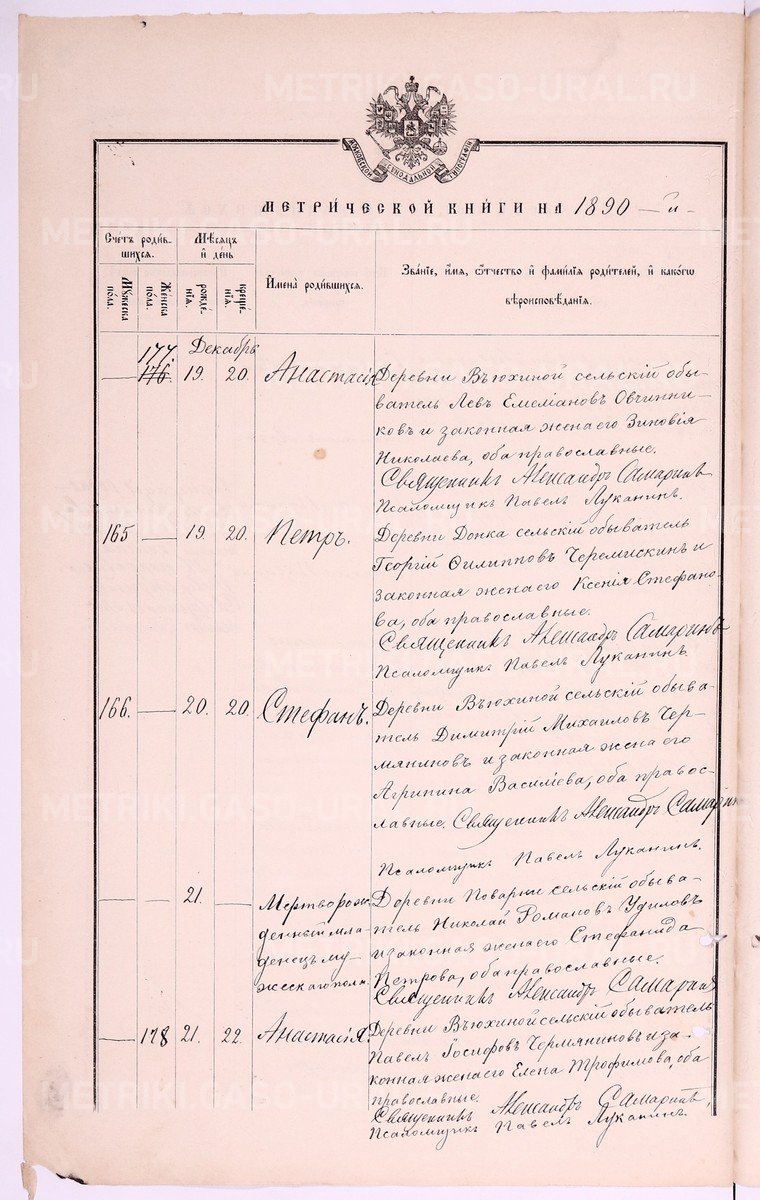 METRIKI.GASO-URAL.RU
МОСКОВСКОЙ СѴНОДАЛЬНОЙ ТИПОГРАФІИ
МЕТРИ́ЧЕСКОЙ КНИ́ГИ НА 1890 — й —
Сче́тъ роди́в-
шихся.
Му́жеска
по́ла.
Же́нска
по́ла.
Мѣ́сяцъ
и҆ де́нь
рожде́-
нїя.
креще́-
нїя.
И҆мена̀ роди́вшихся.
Зва́нїе, и҆́мѧ, ѻ҆́тчество и҆ фами́лїѧ роди́телей, и҆ како́гѡ
вѣроисповѣ́данїѧ.
Декабрь
177.
— 176. 19. 20. Анастасія
Деревни Вьюхиной сельскій обы-
ватель Левъ Емеліановъ Овчинни-
ковъ и законная жена его Зиновія
Николаева, оба православные.
Священникъ Александръ Самаринъ
Псаломщикъ Павелъ Луканинъ.
165 — 19. 20. Петръ.
Деревни Донка сельскій обыватель
Георгій Филипповъ Черемискинъ и
законная жена его Ксенія Стефано-
ва, оба православные.
Священникъ Александръ Самаринъ
Псаломщикъ Павелъ Луканинъ
166. — 20. 20. Стефанъ.
Деревни Вьюхиной сельскій обыва-
тель Димитрій Михаиловъ Чер-
мяниновъ и законная жена его
Агрипина Василіева, оба правос-
лавные. Священникъ Александръ Самаринъ
Псаломщикъ Павелъ Луканинъ.
— — 21. — Мертворож-
денный мла-
денецъ му-
жескаго пола.
Деревни Поварни сельскій обыва-
тель Николай Романовъ Удиловъ
и законная жена его Стефанида
Петрова, оба православные.
Священникъ Александръ Самаринъ
— 178 21. 22. Анастасія.
Деревни Вьюхиной сельскій обыватель
Павелъ Іосифовъ Чермяниновъ и за-
конная жена его Елена Трофимова, оба
православные.
Священникъ Александръ Самаринъ,
Псаломщикъ Павелъ Луканинъ.